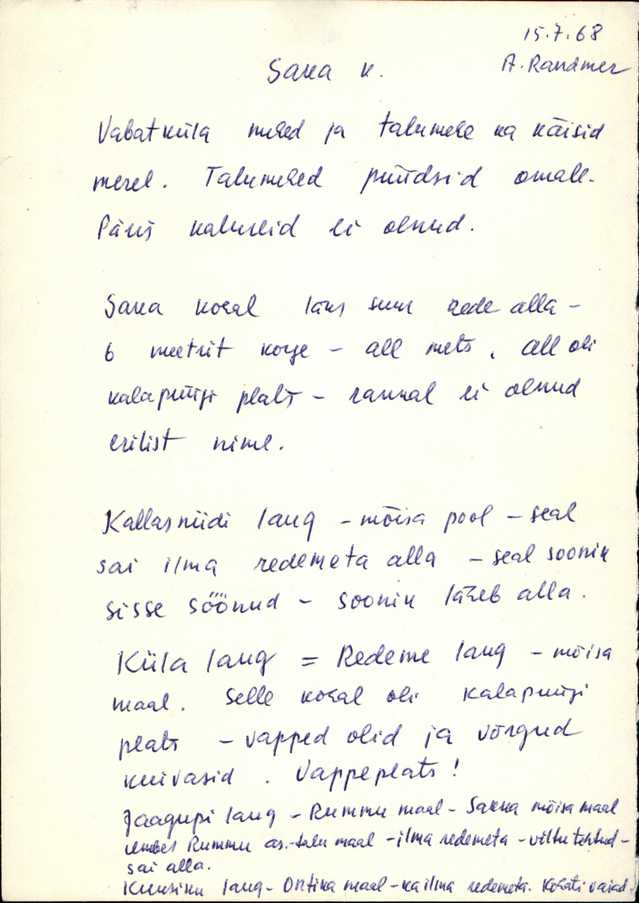 15.7.68
Saka k. A. Randmer
Vabatküla mehed ja talumehe ka käisid
merel. Talumehed püüdsid omale.
Päris kalureid ei olnud.
Saka kohal läks suur rede alla -
6 meetrit kõrge - all mets, all oli
kalapüügi plats - rannal ei olnud
erilist nime.
Kallasniidi lang - mõisa pool - seal
sai ilma redemeta alla - seal soonik
sisse söönud - soonik läheb alla.
Küla lang = Redeme lang - mõisa
maal. Selle kohal oli kalapüügi
plats - vapped olid ja võrgud
kuivasid. Vappeplats!
Jaagupi lang - Rummu maal - Sakka mõisa maal
umbes Rummu as.-talu maal - ilma redemeta - viltu tehtud -
sai alla.
Kuusiku lang - Ontika maal - ka ilma redemeta. Kohati vaiad.